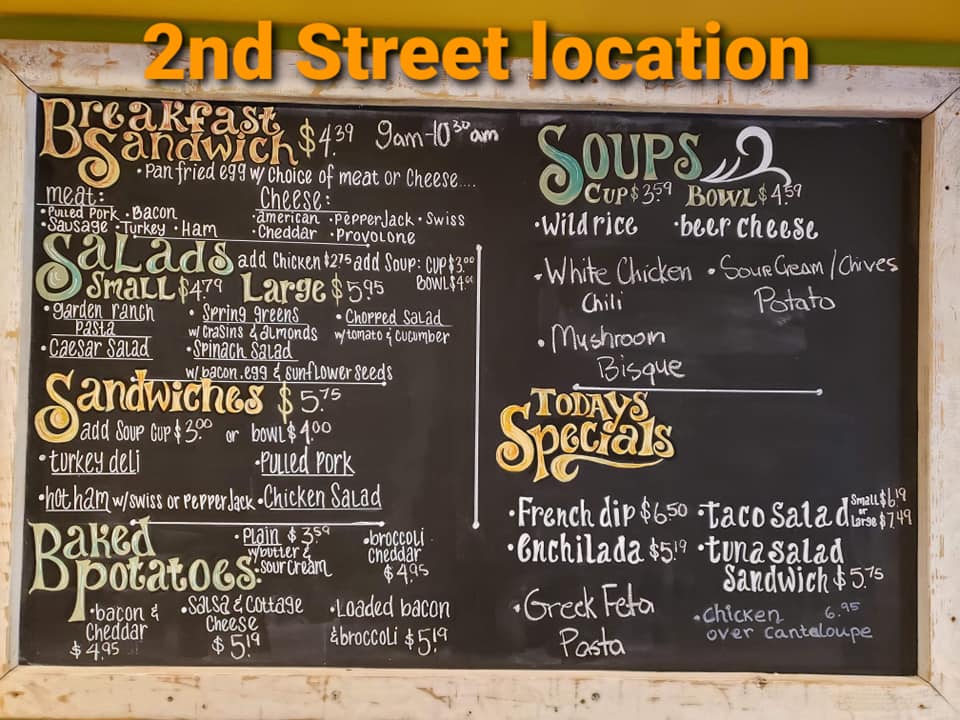 2nd Street location
Breakfast Sandwich $4.39 9am-10:30 am
• Pan fried egg w/ choice of meat or Cheese....
meat: Cheese:
• Pulled Pork • Bacon • american • Pepper Jack • Swiss
• Sausage • Turkey • Ham • Cheddar • Provolone
Salads add Chicken $2.75 add Soup: Cup $3.00
Small $4.79 Large $5.95 Bowl $4.00
• garden ranch pasta
• Spring greens w/ crasins & almonds
• Chopped Salad w/ tomato & cucumber
• Caesar Salad
• Spinach Salad w/ bacon, egg & sunflower seeds
Sandwiches $5.75
add Soup Cup $3.00 or bowl $4.00
• turkey deli • Pulled Pork
• hot ham w/ swiss or Pepper Jack • Chicken Salad
Baked potatoes:
• Plain $3.59 w/ butter & sour cream
• broccoli cheddar $4.95
• bacon & Cheddar $4.95
• Salsa & Cottage Cheese $5.19
• Loaded bacon & broccoli $5.19
Soups
Cup $3.59 Bowl $4.59
• Wild rice • beer cheese
• White Chicken Chili
• Sour Cream / Chives Potato
• Mushroom Bisque
Todays Specials
• French dip $6.50 • taco Salad Small $6.19 or Large $7.49
• Enchilada $5.19 • tuna salad Sandwich $5.75
• Greek Feta Pasta
• Chicken 6.95
over cantaloupe